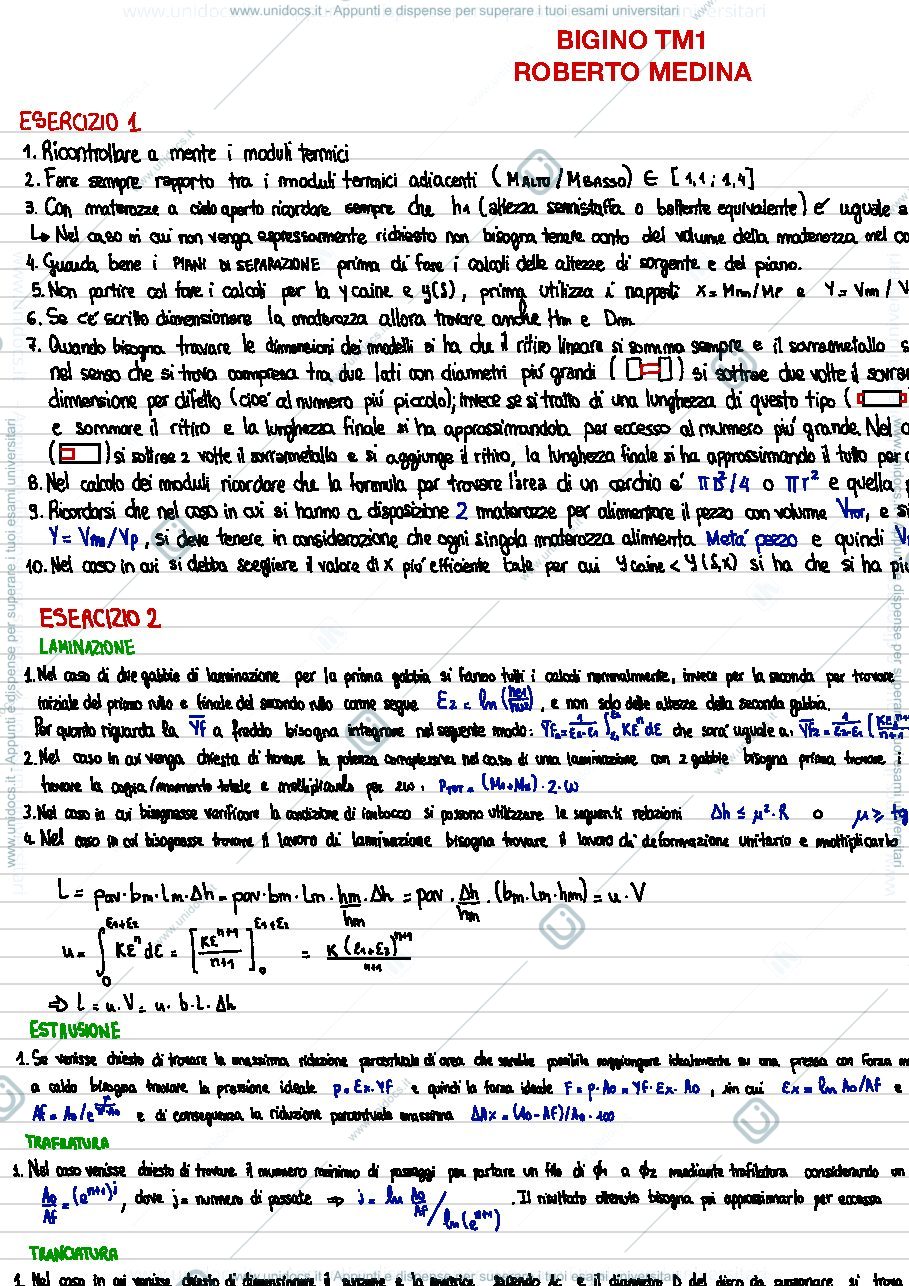 www.unidocs.it - Appunti e dispense per superare i tuoi esami universitari
BIGINO TM1
ROBERTO MEDINA
ESERCIZIO 1
1. Ricontrollare a mente i moduli termici
2. Fare sempre rapporto tra i moduli termici adiacenti (MALTO/MBASSO) ∈ [1,1 ; 1,4]
3. Con materozze a cielo aperto ricordare sempre che h1 (altezza semistaffa o battente equivalente) e' uguale a
↳ Nel caso in cui non venga espressamente richiesto non bisogna tenere conto del volume della materozza nel
4. Guarda bene i PIANI DI SEPARAZIONE prima di fare i calcoli delle altezze di sorgente e del piano.
5. Non partire col fare i calcoli per la y caine e y(S), prima utilizza i rapporti X = Mm/Mp e Y = Vm / V
6. Se c'e' scritto dimensionare la materozza allora trovare anche Hm e Dm.
7. Quando bisogna trovare le dimensioni dei modelli si ha che il ritiro lineare si somma sempre e il sovrametallo s
nel senso che si trova compresa tra due lati con diametri piu' grandi ( ) si sottrae due volte il
dimensione per difetto (cioe' al numero piu' piccolo); invece se si tratta di una lunghezza di questo tipo (
e sommare il ritiro e la lunghezza finale si ha approssimandola per eccesso al numero piu' grande. Nel
( ) si sottrae 2 volte il sovrametallo e si aggiunge il ritiro, la lunghezza finale si ha approssimando il tutto per
8. Nel calcolo dei moduli ricordare che la formula per trovare l'area di un cerchio e' πD²/4 o πr² e quella
9. Ricordarsi che nel caso in cui si hanno a disposizione 2 materozze per alimentare il pezzo con volume VTOT, e si
Y = Vm/Vp, si deve tenere in considerazione che ogni singola materozza alimenta Meta' pezzo e quindi V
10. Nel caso in cui si debba scegliere il valore di x piu' efficiente tale per cui Y caine < Y(S,X) si ha che si ha
ESERCIZIO 2
LAMINAZIONE
1. Nel caso di due gabbie di laminazione per la prima gabbia si fanno tutti i calcoli normalmente, invece per la seconda per trovare
iniziale del primo rullo e finale del secondo rullo come segue , e non solo delle altezze della seconda gabbia.
Per quanto riguarda la Yf a freddo bisogna integrare nel seguente modo: che sara' uguale a:
2. Nel caso in cui venga chiesta di trovare la potenza complessiva nel caso di una laminazione con 2 gabbie bisogna prima trovare i
trovare la coppia/momento totale e moltiplicarlo per 2ω: PTOT = (M1+M2)·2·ω
3. Nel caso in cui bisognasse verificare la condizione di imbocco si possono utilizzare le seguenti relazioni Δh ≤ μ²·R o μ ≥ tg
4. Nel caso in cui bisognasse trovare il lavoro di laminazione bisogna trovare il lavoro di deformazione unitario e moltiplicarlo
L = pav·bm·Lm·Δh = pav·bm·Lm·hm/hm·Δh = pav·Δh/hm·(bm·Lm·hm) = u·V
u = ∫₀^(ε1+ε2) Kεⁿ dε = [Kε^(n+1)/(n+1)]₀^(ε1+ε2) = K(ε1+ε2)^(n+1)/(n+1)
⇒ L = u·V = u·b·L·Δh
ESTRUSIONE
1. Se venisse chiesto di trovare la massima riduzione percentuale di area che sarebbe possibile raggiungere idealmente su una pressa con Forza
a caldo bisogna trovare la pressione ideale p = Ex·Yf e quindi la forza ideale F = p·A0 = Yf·Ex·A0, in cui Ex = ln A0/Af e
e di conseguenza la riduzione percentuale massima ΔA% = (A0-Af)/A0·100
TRAFILATURA
1. Nel caso venisse chiesto di trovare il numero minimo di passaggi per portare un filo di ϕ1 a ϕ2 mediante trafilatura considerando un
A0/Af = (e^(n+1))^j, dove j = numero di passate ⇒ j = ln A0/Af / ln(e^(n+1)). Il risultato ottenuto bisogna poi approssimarlo per eccesso
TRANCIATURA
1. Nel caso in cui venisse chiesto di dimensionare il punzone e la matrice, sapendo Ac e il diametro D del disco da